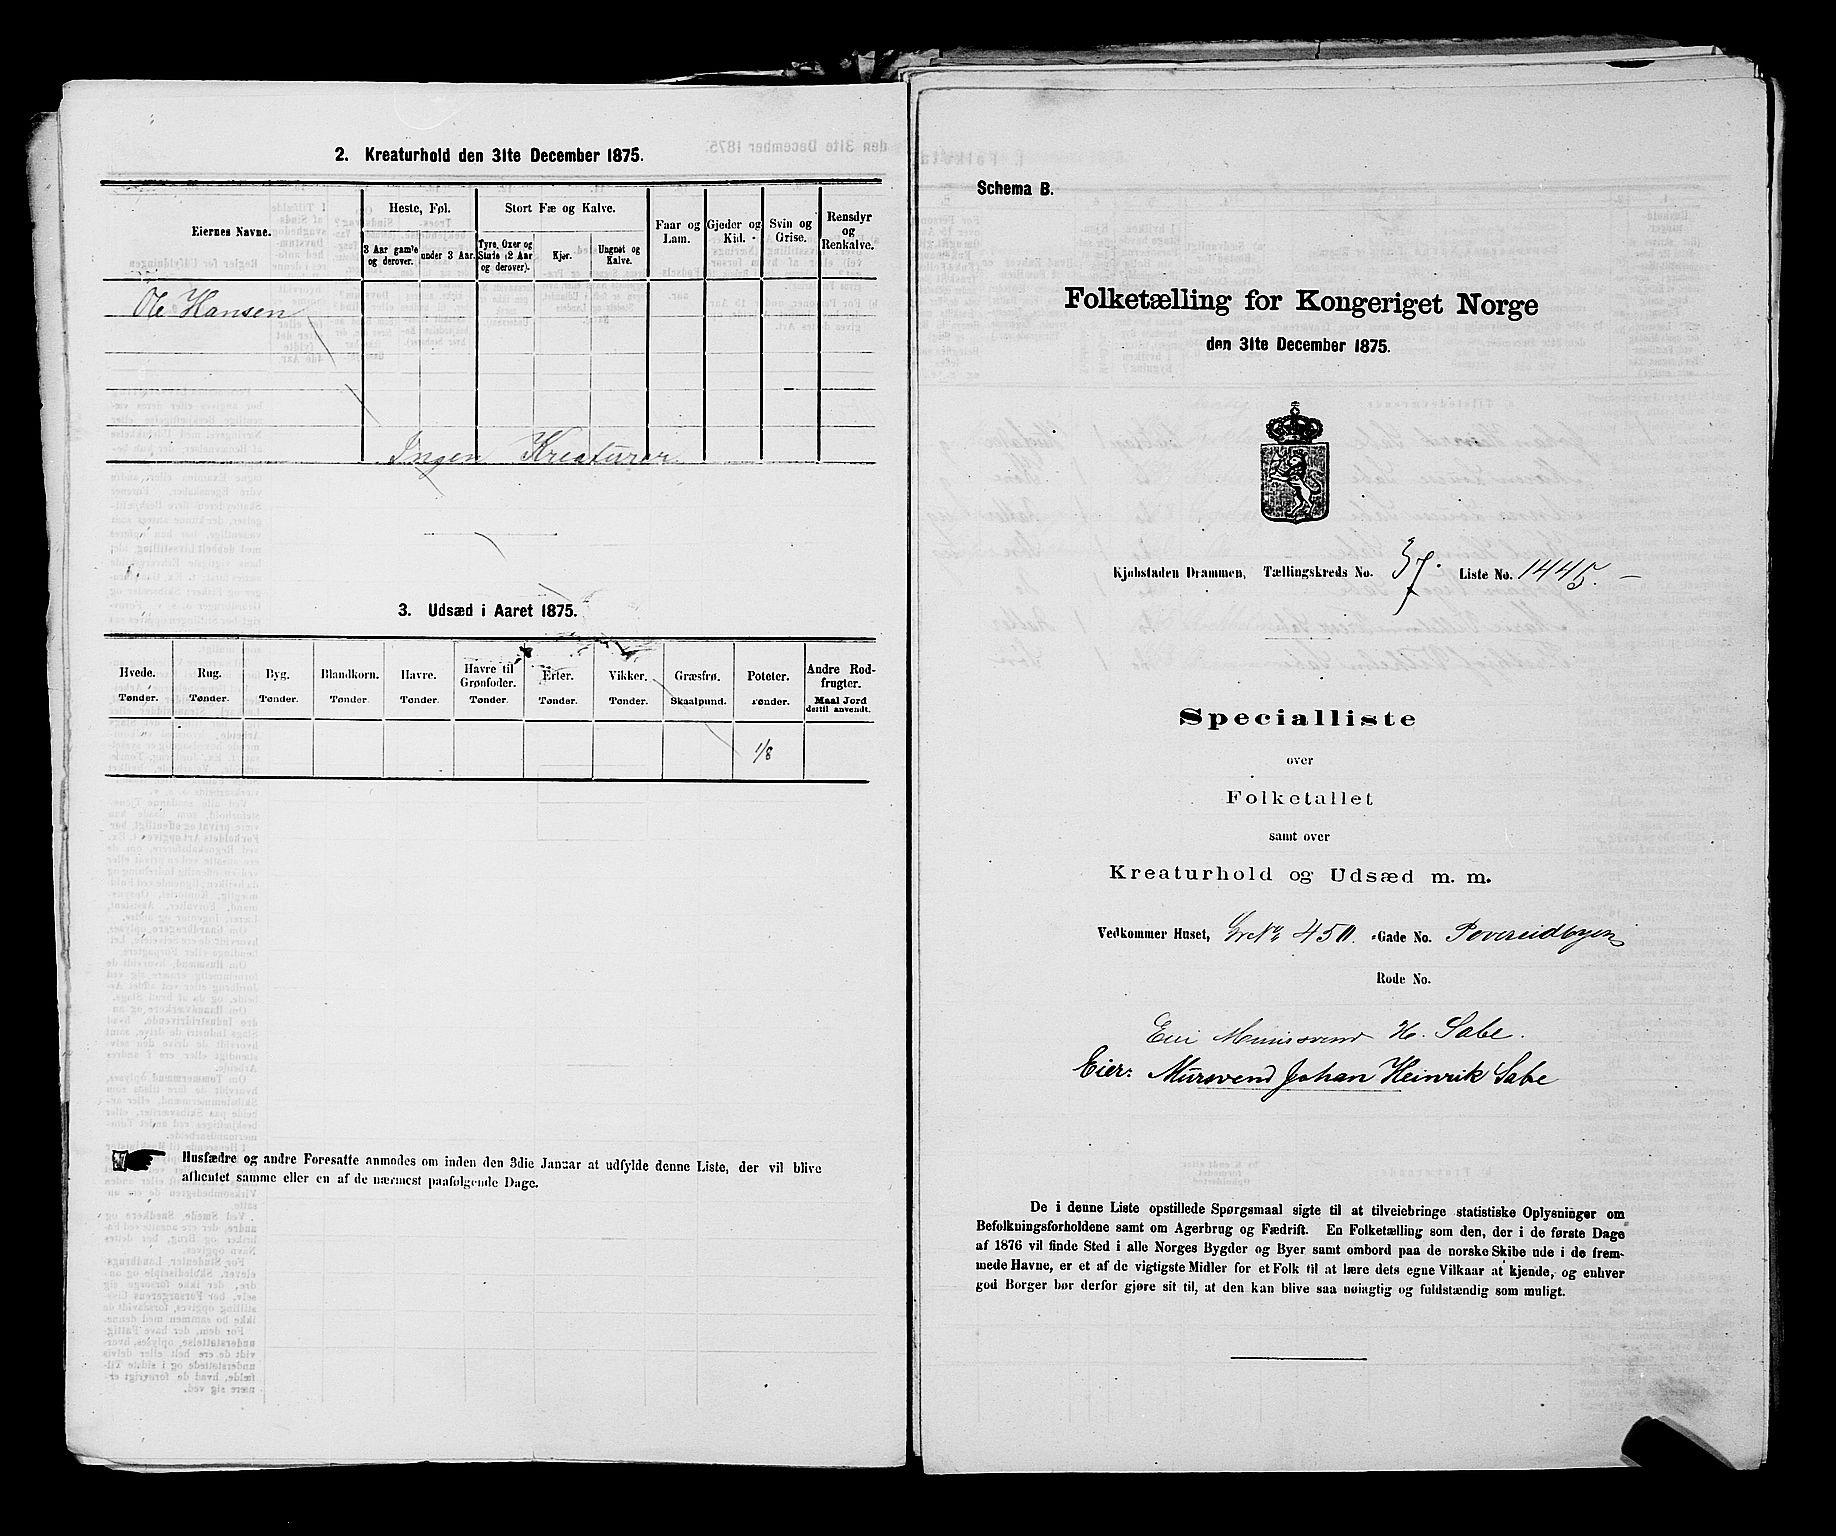 2. Kreaturhold den 31te December 1875.
Eiernes Navne.
Heste, Føl.
Stort Fæ og Kalve.
Faar og Lam.
Gjeder og Kid.
Svin og Grise.
Rensdyr og Renkalve.
3 Aar gamle og derover.
under 3 Aar.
Tyre, Oxer og Stude (2 Aar og derover).
Kjør.
Ungnøt og Kalve.
Ole Hansen
Ingen Kreaturer
3. Udsæd i Aaret 1875.
Hvede. Rug. Byg. Blandkorn. Havre. Havre til Grønfoder. Erter. Vikker. Græsfrø. Poteter. Andre Rodfrugter.
Tønder. Tønder. Tønder. Tønder. Tønder. Tønder. Tønder. Tønder. Skaalpund. Tønder. Maal Jord dertil anvendt.
1/8
Husfædre og andre Foresatte anmodes om inden den 3die Januar at udfylde denne Liste, der vil blive
afhentet samme eller en af de nærmest paafølgende Dage.
Schema B.
Folketælling for Kongeriget Norge
den 31te December 1875.
Kjøbstaden Drammen, Tællingskreds No. 37. Liste No. 1445.
Specialliste
over
Folketallet
samt over
Kreaturhold og Udsæd m. m.
Vedkommer Huset, 450. Gade No.
Rode No.
H. Sabe.
Eier: Mursvend Johan Heinrik Sabe
De i denne Liste opstillede Spørgsmaal sigte til at tilveiebringe statistiske Oplysninger om
Befolkningsforholdene samt om Agerbrug og Fædrift. En Folketælling som den, der i de første Dage
af 1876 vil finde Sted i alle Norges Bygder og Byer samt ombord paa de norske Skibe ude i de frem-
mede Havne, er et af de vigtigste Midler for et Folk til at lære dets egne Vilkaar at kjende, og enhver
god Borger bør derfor gjøre sit til, at den kan blive saa nøiagtig og fuldstændig som muligt.